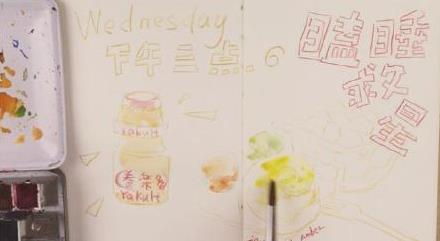 Wednesday
下午三点. 6
瞌睡
救星
Yakult
养乐多
Yakult